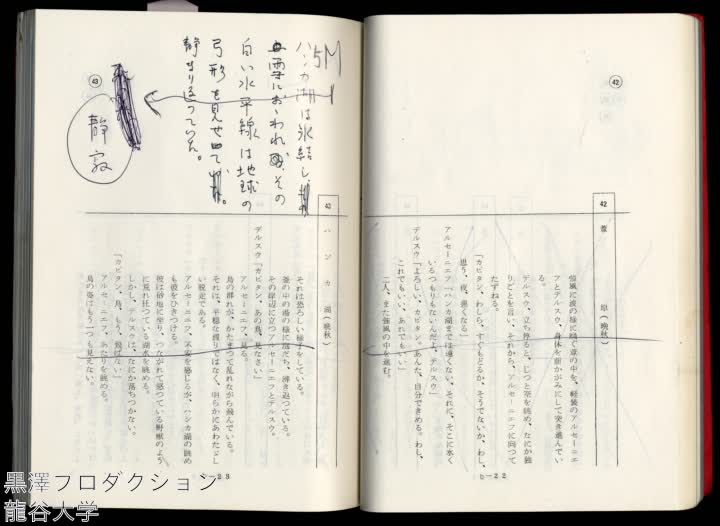 42
42 葦原(晩秋)
強風に波の様に騒ぐ葦の中を、軽装のアルセーニエ
フとデルスウ、身体を前かがみにして突き進んでい
る。
デルスウ、立ち停ると、じっと空を眺め、なにか独
りごとを言い、それから、アルセーニエフに向って
たずねる。
「カピタン、わしら、すぐもどるか、そうでないか、わし、
思う、夜、悪くなる」
アルセーニエフ「ハンカ湖までは遠くない、それに、そこに永く
いるつもりもないんだよ、デルスウ」
デルスウ「よろしい、カピタン、あんた、自分できめる。わし、
これでもいい、あれでもいい」
二人、また強風の中を進む。
b-22
43
ハンカ湖は氷結し、
雪におゝわれ、その
白い水平線は地球の
弓形を見せて
静まり返っていた。
静寂
43 ハンカ湖(晩秋)
それは恐ろしい様子をしている。
釜の中の湯の様に泡だち、沸き返っている。
その岸辺に立つアルセーニエフとデルスウ。
デルスウ「カピタン、あの鳥、見なさい」
アルセーニエフ、見る。
鳥の群れが、かたまって乱れながら飛んでいる。
それは、平穏な渡りではなく、明らかにあわただし
い脱走である。
アルセーニエフ、不安を感じるが、ハンカ湖の眺め
も彼をひきつける。
彼は砂地に坐り、つながれて怒っている野獣のよう
に荒れ狂っている湖水を眺める。
しかし、デルスウは、なにか落ちつかない。
「カピタン、鳥、もう、飛ばない」
アルセーニエフ、あたりを眺める。
鳥の姿はもう一つも見えない。
b-23
黒澤プロダクション
龍谷大学